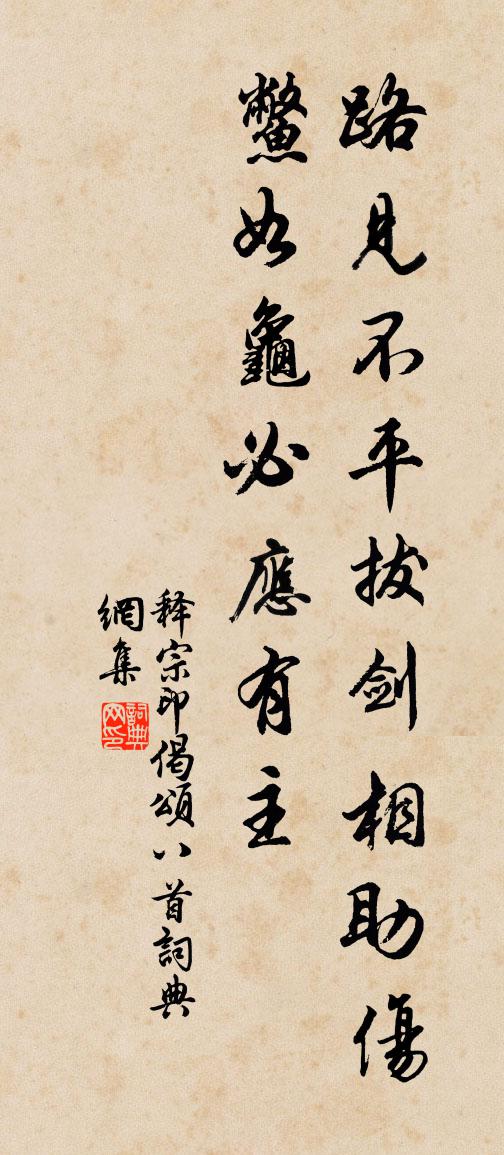 路見不平拔剑相助傷
鱉如龜必應有主
释宗印偈頌八首詞典
網集
詞典网印